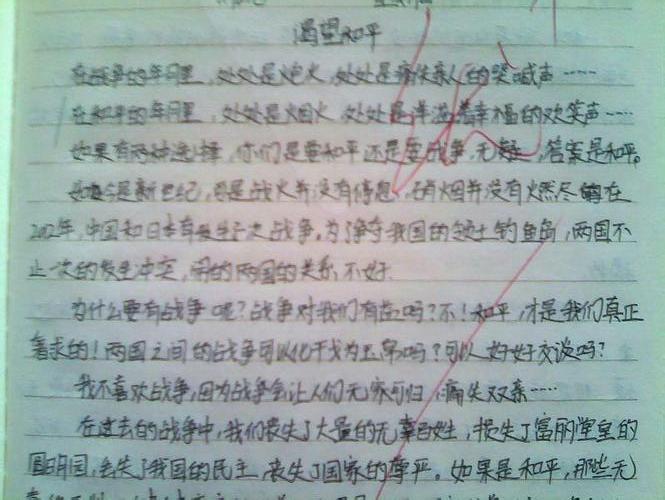 渴望和平
在战争的年月里，处处是炮火，处处是痛失亲人的哭喊声……
在和平的年月里，处处是烟火，处处是洋溢着幸福的欢笑声……
如果有两种选择，你们是要和平还是要战争，无疑，答案是和平。
如今是新世纪，可是战火并没有停息，硝烟并没有燃尽。在
2012年，中国和日本有发生过一次战争。为了争夺我国的领土钓鱼岛，两国不
止一次的发生冲突，闹的两国的关系不好。
为什么要有战争呢？战争对我们有益吗？不！和平，才是我们真正
寻求的！两国之间的战争可以化干戈为玉帛吗？可以好好交谈吗？
我不喜欢战争，因为战争会让人们无家可归，痛失双亲……
在过去的战争中，我们丧失了大量的无辜百姓，损失了富丽堂皇的
圆明园，丢失了我国的民主，丧失了国家的尊严。如果是和平，那些无